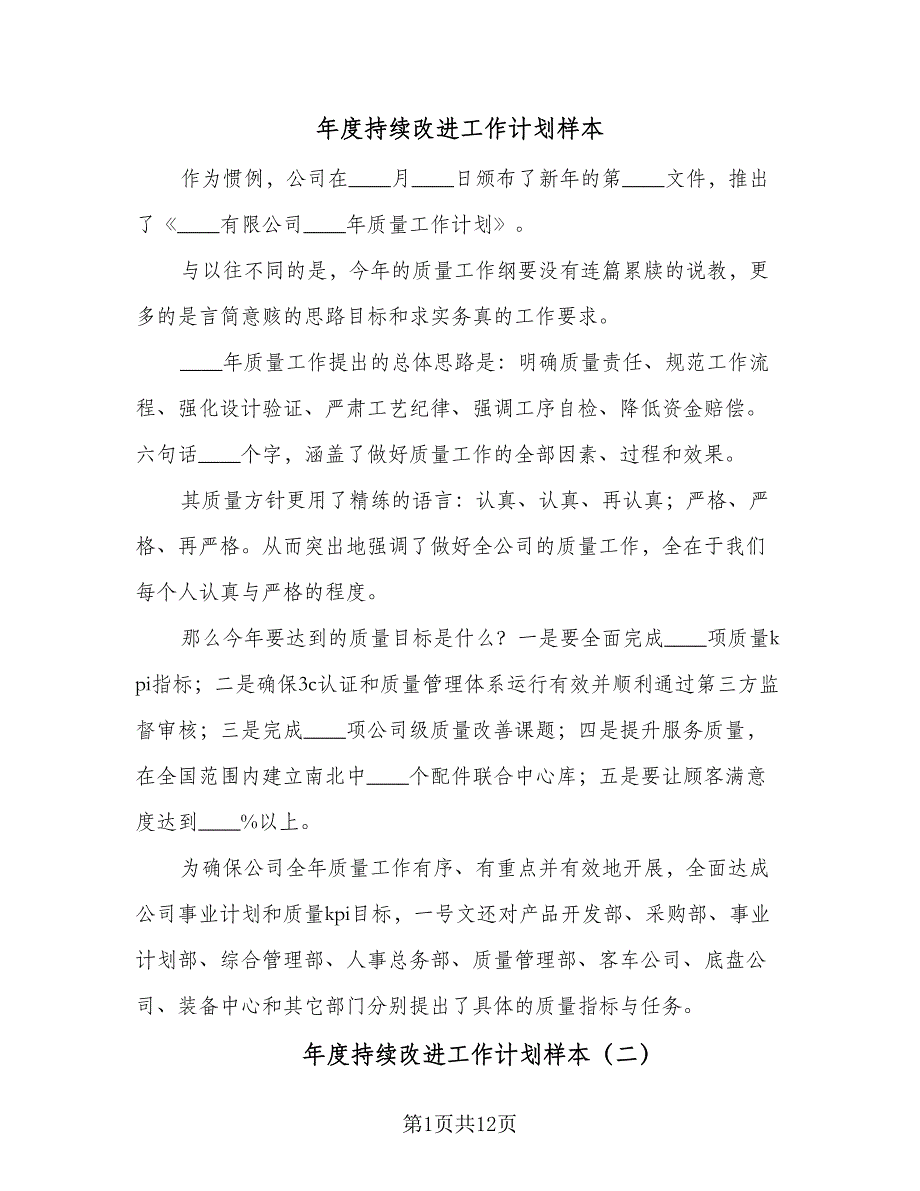 年度持续改进工作计划样本
作为惯例，公司在____月____日颁布了新年的第____文件，推出
了《____有限公司____年质量工作计划》。
与以往不同的是，今年的质量工作纲要没有连篇累牍的说教，更
多的是言简意赅的思路目标和求实务真的工作要求。
____年质量工作提出的总体思路是：明确质量责任、规范工作流
程、强化设计验证、严肃工艺纪律、强调工序自检、降低资金赔偿。
六句话____个字，涵盖了做好质量工作的全部因素、过程和效果。
其质量方针更用了精练的语言：认真、认真、再认真；严格、严
格、再严格。从而突出地强调了做好全公司的质量工作，全在于我们
每个人认真与严格的程度。
那么今年要达到的质量目标是什么？一是要全面完成____项质量k
pi指标；二是确保3c认证和质量管理体系运行有效并顺利通过第三方监
督审核；三是完成____项公司级质量改善课题；四是提升服务质量，
在全国范围内建立南北中____个配件联合中心库；五是要让顾客满意
度达到____%以上。
为确保公司全年质量工作有序、有重点并有效地开展，全面达成
公司事业计划和质量kpi目标，一号文还对产品开发部、采购部、事业
计划部、综合管理部、人事总务部、质量管理部、客车公司、底盘公
司、装备中心和其它部门分别提出了具体的质量指标与任务。
年度持续改进工作计划样本（二）
第1页共12页